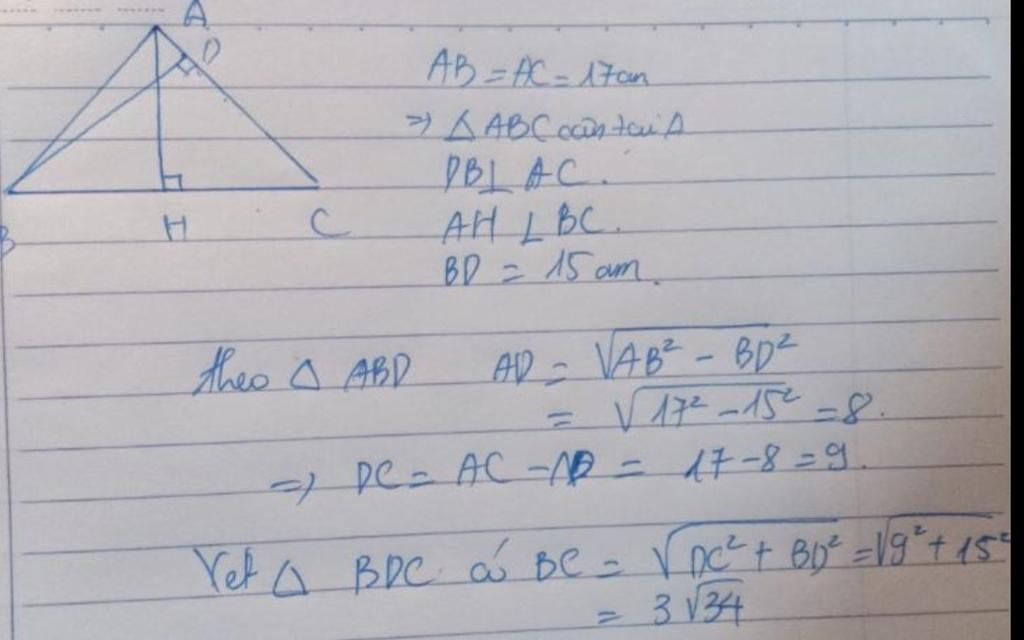 A
D
B
H
C
AB = AC = 17cm
=> △ ABC cân tại A
DB ⊥ AC.
AH ⊥ BC.
BD = 15 cm.
theo △ ABD AD = √(AB² - BD²)
= √(17² - 15²) = 8.
=> DC = AC - AD = 17 - 8 = 9.
Xét △ BDC có BC = √(DC² + BD²) = √(9² + 15²)
= 3√34